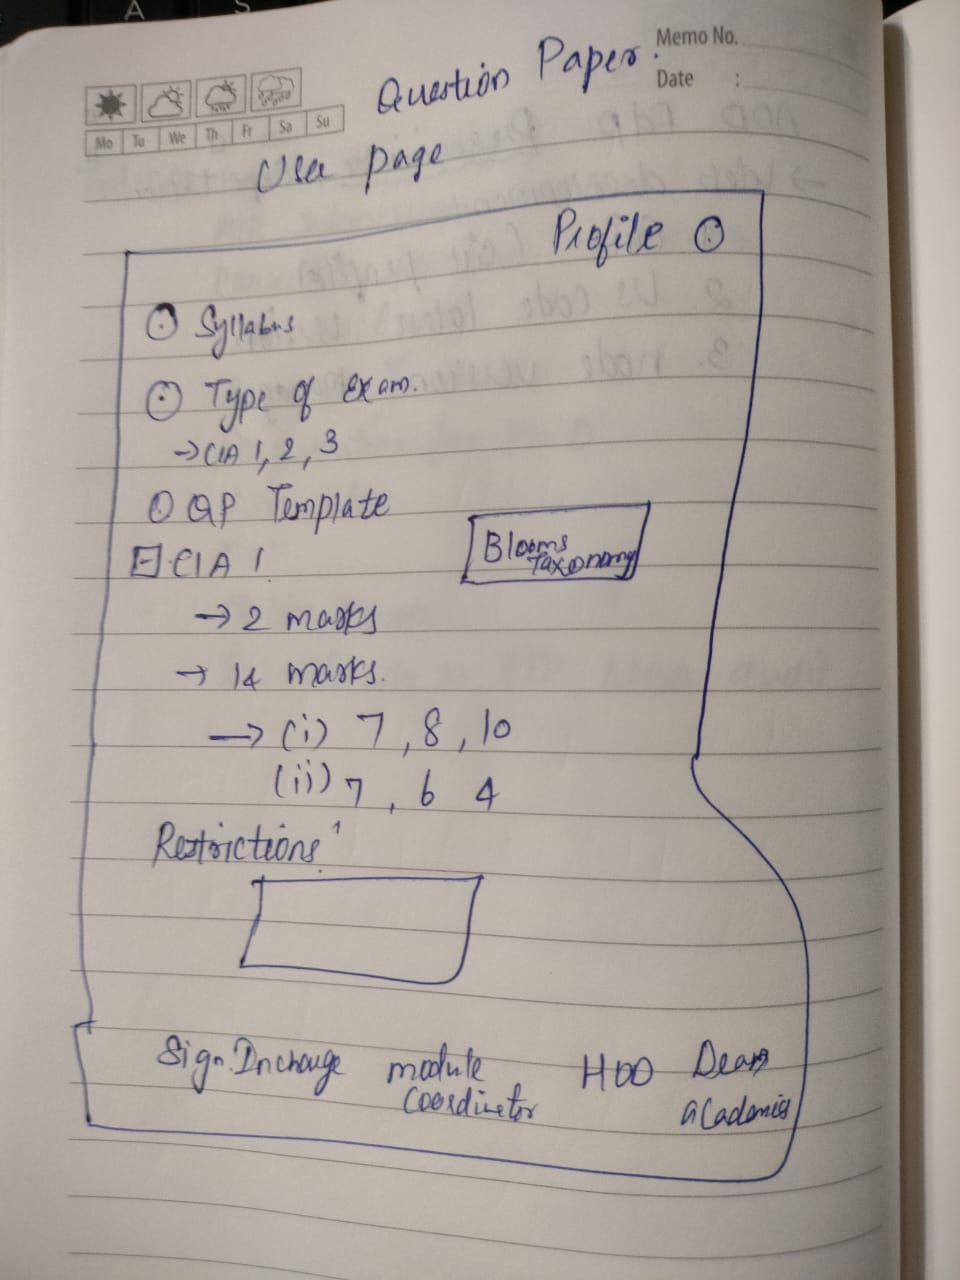 A S
Memo No.
Question Paper.
Date :
Mo Tu We Th Fr Sa Su
User page
Profile
Syllabus
Type of Exam.
→ CIA 1, 2, 3
QP Template
CIA 1
Blooms Taxonomy
→ 2 marks
→ 14 marks.
→ (i) 7, 8, 10
(ii) 7, 6 4
Restrictions
Sign. Incharge module Coordinator HOD Dean academics